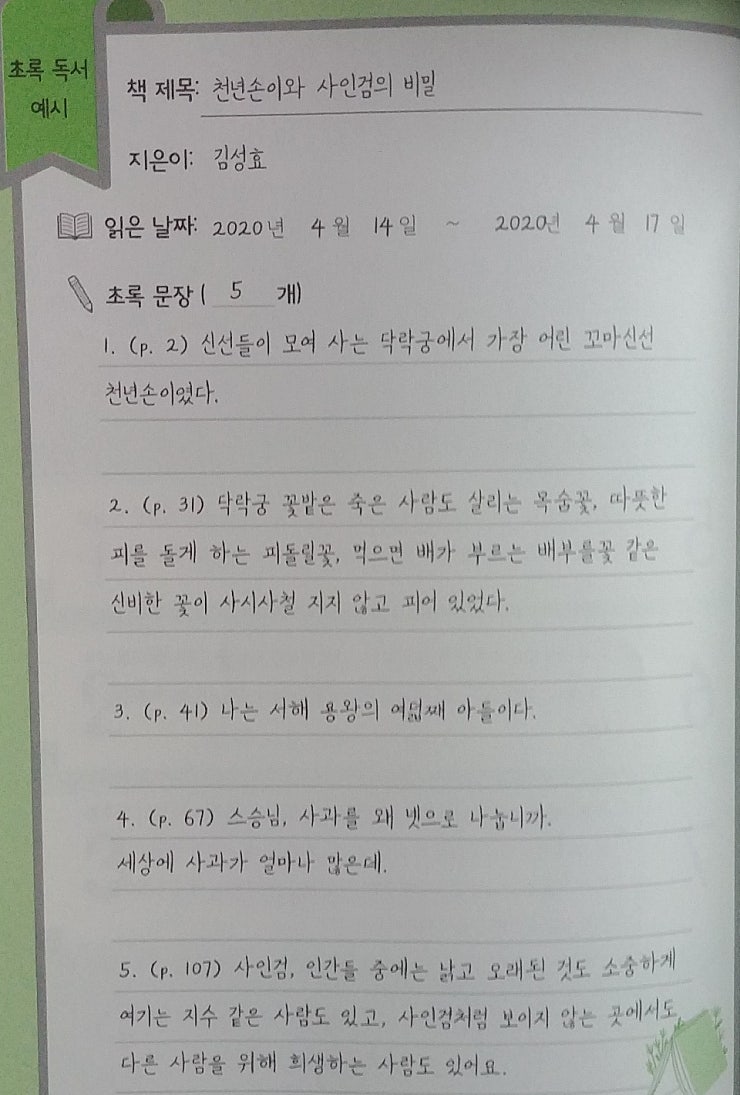 초록 독서
예시
책 제목: 천년손이와 사인검의 비밀
지은이: 김성효
읽은 날짜: 2020년 4월 14일 ~ 2020년 4월 17일
초록 문장 ( 5 개)
1. (p. 2) 신선들이 모여 사는 닥락궁에서 가장 어린 꼬마신선
천년손이였다.
2. (p. 31) 닥락궁 꽃밭은 죽은 사람도 살리는 목숨꽃, 따뜻한
피를 돌게 하는 피돌릴꽃, 먹으면 배가 부르는 배부를꽃 같은
신비한 꽃이 사시사철 지지 않고 피어 있었다.
3. (p. 41) 나는 서해 용왕의 여덟째 아들이다.
4. (p. 67) 스승님, 사과를 왜 넷으로 나눕니까.
세상에 사과가 얼마나 많은데.
5. (p. 107) 사인검, 인간들 중에는 낡고 오래된 것도 소중하게
여기는 지수 같은 사람도 있고, 사인검처럼 보이지 않는 곳에서도
다른 사람을 위해 희생하는 사람도 있어요.